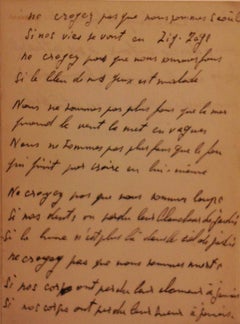 ne croyez pas que nous sommes saouls
Si nos vies se vont en Zig-Zags
ne croyez pas que nous sommes fous
Si le bleu de nos yeux est malade
Nous ne sommes pas plus fous que la mer
quand le vent la met en vagues
Nous ne sommes pas plus fous que le fou
qui finit par croire en lui-même
Ne croyez pas que nous sommes loups
Si nos dents ont perdu leur blancheur de jadis
Si la lune n'est plus là dans le ciel de jadis
ne croyez pas que nous sommes morts
Si nos corps ont perdu leur à jamais
Si nos corps ont perdu leur à jamais